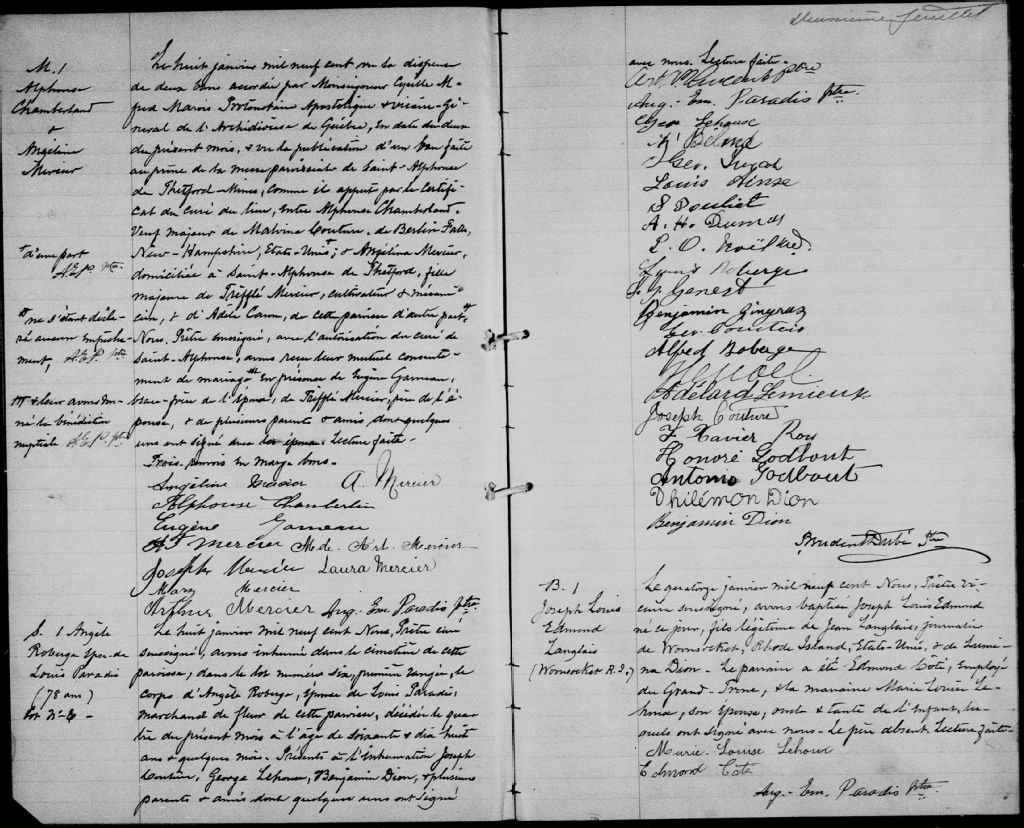 M. 1
Alphonse
Chamberland
&
Angéline
Mercier
Le huit janvier mil neuf cent vu la dispense
de deux bans accordée par Monseigneur Cyrille Al-
fred Marois Protonotaire Apostolique & vicaire-Gé-
néral de l'Archidiocèse de Québec, en date du deux
du présent mois, & vu la publication d'un ban faite
au prône de la messe paroissiale de Saint-Alphonse
de Thetford-Mines, comme il appert par le certifi-
cat du curé du lieu, entre Alphonse Chamberland,
Veuf majeur de Malvina Couture, de Berlin Falls,
New-Hampshire, Etats-Unis; & Angélina Mercier,
domiciliée à Saint-Alphonse de Thetford, fille
majeure de Trefflé Mercier, cultivateur & mécani-
cien, & d'Adèle Caron, de cette paroisse d'autre part,
Nous, Prêtre soussigné, avec l'autorisation du curé de
Saint-Alphonse, avons reçu leur mutuel consente-
ment de mariage en présence de Eugène Garneau,
beau-frère de l'époux, de Trefflé Mercier, père de l'é-
pouse, & de plusieurs parents & amis dont quelques
uns ont signé avec les époux. Lecture faite.
Trois renvois en marge bons.
d'une part
A.E.P. Ptre
ne s'étant décla-
ré aucun empêche-
ment, A.E.P. Ptre
& leur avons don-
né la bénédiction
nuptiale A.E.P. Ptre
Angéline Mercier A. Mercier
Alphonse Chamberlin
Eugène Garneau
Mercier Mde. Art. Mercier
Joseph Mercier Laura Mercier
Mary Mercier
Arthur Mercier Aug. Em. Paradis Ptre
S. 1 Angèle
Roberge Eps. de
Louis Paradis
(78 ans)
Lot No 6
Le huit janvier mil neuf cent Nous, Prêtre curé
soussigné, avons inhumé dans le cimetière de cette
paroisse, dans le lot numéro six, première rangée, le
corps d'Angèle Roberge, épouse de Louis Paradis,
marchand de fleur de cette paroisse, décédée le qua-
tre du présent mois à l'âge de soixante & dix huit
ans & quelques mois. Présents à l'inhumation Joseph
Couture, George Lehoux, Benjamin Dion, & plusieurs
parents & amis dont quelques uns ont signé
Deuxième feuillet
avec nous. Lecture faite.
Vincent Ptre
Aug. Em. Paradis Ptre
Geo Lehoux
Geo.
Louis Ainse
S Pouliot
A. H. Dumas
L. O.
Roberge
Genest
Benjamin Gingras
Geo. Pouliot
Alfred Roberge
Adélard Lemieux
Joseph Couture
F. Xavier Roy
Honoré Godbout
Antonio Godbout
Philémon Dion
Benjamin Dion
Prudent Dubé Ptre
B. 1
Joseph Louis
Edmond
Langlais
(Wonsocket R.I.)
Le quatorze janvier mil neuf cent Nous, Prêtre vi-
caire soussigné, avons baptisé Joseph Louis Edmond
né ce jour, fils légitime de Jean Langlais, journalier
de Wonsocket, Rhode Island, Etats-Unis, & de Lumi-
na Dion. Le parrain a été Edmond Côté, employé
du Grand-Tronc, & la marraine Marie Louise Le-
houx, son épouse, oncle & tante de l'enfant, les-
quels ont signé avec nous. Le père absent. Lecture faite.
Marie-Louise Lehoux
Edmond Côté
Aug. Em. Paradis Ptre